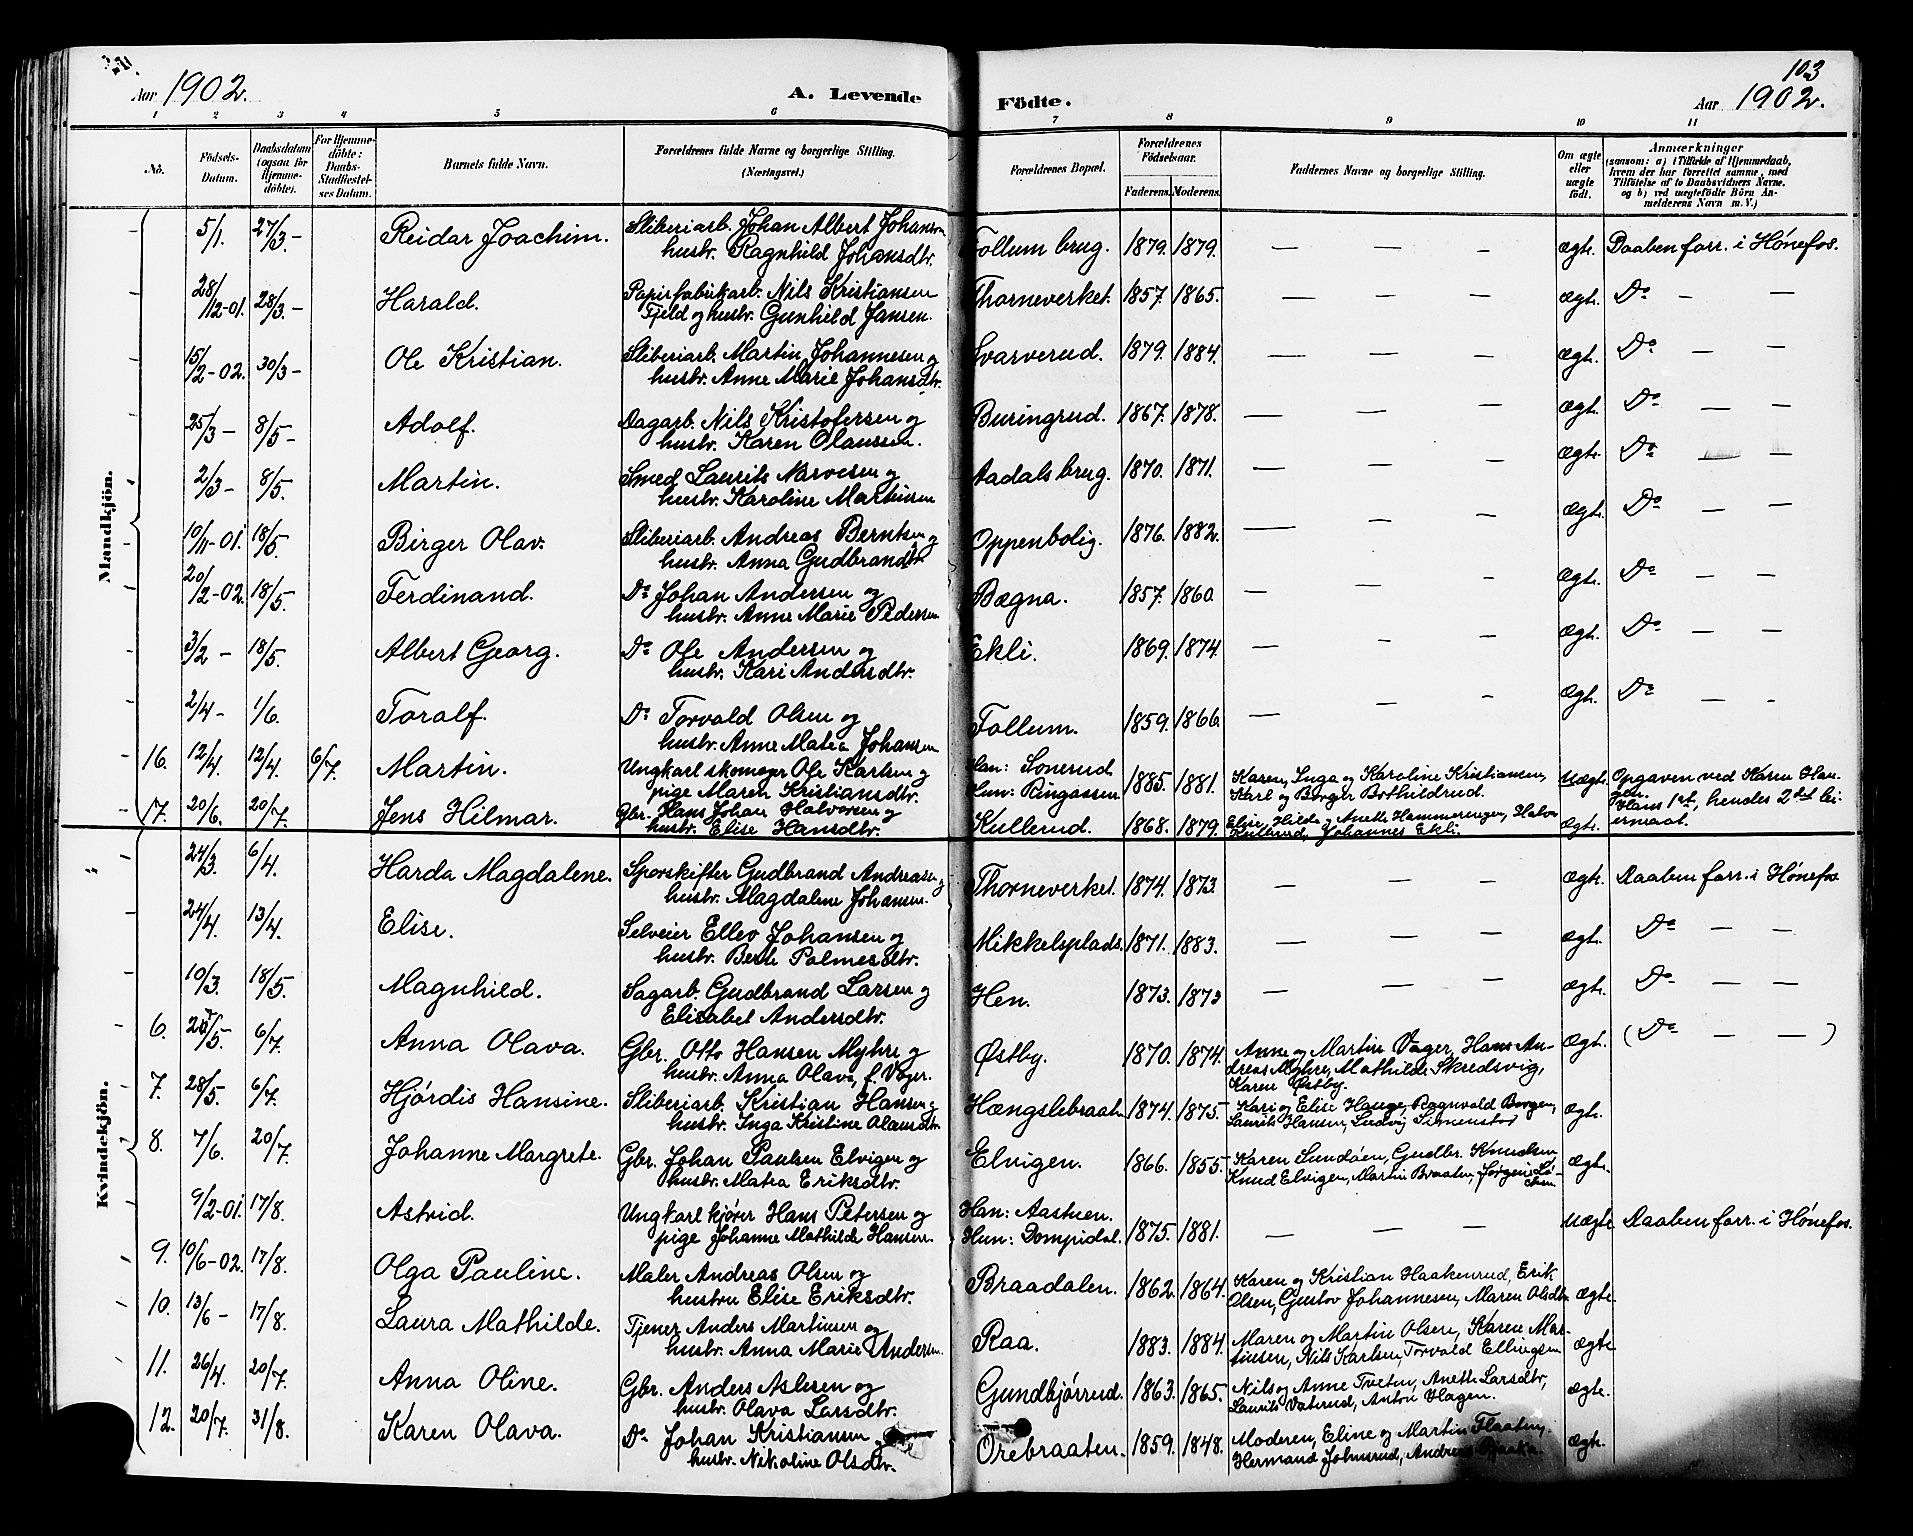 Aar 1902.
A. Levende
Födte.
103
Aar 1902.
1 2 3 4 5 6 7 8 9 10 11
No.
Födsels-Datum.
Daabsdatum (ogsaa for Hjemmedöbte).
For Hjemmedöbte: Daabs-Stadfæstelses Datum.
Barnets fulde Navn.
Forældrenes fulde Navne og borgerlige Stilling.
(Næringsvei.)
Forældrenes Bopæl.
Forældrenes Födselsaar.
Faderens. Moderens.
Faddernes Navne og borgerlige Stilling.
Om ægte eller uægte födt.
Anmærkninger
(saasom: a) i Tilfælde af Hjemmedaab,
hvem der har forrettet samme, med
Tilföielse af to Daabsvidners Navne.
og b) ved uægtefödte Börn An-
melderens Navn m. V.)
Mandkjön.
5/1. 27/3 - Reidar Joachim. Sliberiarb. Johan Albert Johansen Follum brug. 1879. 1879. — — — ægte. Daaben forr. i Hønefos.
hustr. Ragnhild Johansdtr.
28/12-01. 28/3 - Harald. Papirfabrikarb. Nils Kristiansen Thorneverket. 1857. 1865. — — — ægte. Do — —
Fjeld og hustr. Gunhild Jansen.
15/2-02. 30/3 - Ole Kristian. Sliberiarb. Martin Johannesen og Svarverud. 1879. 1884. — — — ægte. Do — —
hustr. Anne Marie Johansdtr.
25/3 - 8/5 - Adolf. Dagarb. Nils Kristofersen og Buringrud. 1867. 1878. — — — ægte. Do — —
hustr. Karen Olaussen.
2/3 - 8/5. Martin. Smed Laurits Narvesen og Aadals brug. 1870. 1871. — — — ægte. Do — —
hustr. Karoline Martinsen
10/11-01. 18/5. Birger Olav. Sliberiarb. Andreas Berntsen og Oppenbolig. 1876. 1882. — — — ægte. Do — —
hustr. Anna Gudbrandtr
20/2-02. 18/5. Ferdinand. Do Johan Andersen og Bægna. 1857. 1860. — — — ægte. Do — —
hustr. Anne Marie Pedersen
3/2 - 18/5. Albert Georg. Do Ole Andersen og Ekli. 1869. 1874. — — — ægte. Do — —
hustr. Kari Andersdtr.
2/4 - 1/6. Toralf. Do Torvald Olsen og Follum. 1859. 1866. — — — ægte. Do — —
hustr. Anne Matea Johansen
16. 12/4. 12/4. 6/7. Martin. Ungkarl skomager Ole Karlsen og Han: Sonerud 1885. 1881. Karen, Inga og Karoline Kristiansen, uægte. Opgaven ved Karen Hau-
pige Maren Kristiansdtr. Hun: Ringaasen Karl og Borger Bothildrud. gen.
17. 20/6. 20/7. Jens Hilmar. Gbr. Hans Johan Halvorsen og Kullerud. 1868. 1879. Elise, Hilda og Anette Hammerengen, Halvor ægte. Hans 1ste, hendes 2det lei-
hustr. Elise Hansdtr. Kullerud, Johannes Ekli. ermaal.
Kvindekjön.
24/3. 6/4. Harda Magdalene. Sporskifter Gudbrand Andreasen og Thorneverket. 1874. 1873. — — — ægte. Daaben forr. i Hønefos
hustr. Magdalene Johansen.
24/4. 13/4. Elise. Selveier Ellev Johansen og Mikkelsplads. 1871. 1883. — — — ægte. Do — —
hustr. Berte Palmesdtr.
10/3. 18/5. Magnhild. Sagarb. Gudbrand Larsen og Hen. 1873. 1873 — — — ægte. Do — —
Elisabet Andersdtr.
6. /5- 6/7. Anna Olava. Gbr. Otto Hansen Myhre og Østby. 1870. 1874. Anne og Martin Vager, Hans An- ægte. (Do — —)
hustr. Anna Olava, f. Vager. dreas Myhre, Mathilde Skredsvig,
Karen Østby.
7. 28/5. 6/7. Hjørdis Hansine. Sliberiarb. Kristian Hansen og Hængslebraaten 1874. 1875. Kari og Elise Hauge, Ragnvald Borgen, ægte.
hustr. Inga Kristine Olausdtr Laurits Hansen, Ludvig Simenstad
8. 7/6. 20/7. Johanne Margrete. Gbr. Johan Paulsen Elvigen og Elvigen. 1866. 1855. Karen Sundøen, Gudbr. Knudsen, ægte.
hustr. Matea Eriksdtr. Knud Elvigen, Martin Braaten, Jørgen
9/2-01. 17/8. Astrid. Ungkarl kjører Hans Petersen og Han: Aastuen. 1875. 1881. — — — uægte Daaben forr. i Hønefos.
pige Johanne Mathilde Hansen. Hun: Dompidal.
9. 10/6-02. 17/8. Olga Pauline. Maler Andreas Olsen og Braadalen. 1862. 1864. Karen og Kristian Haakenrud, Erik
hustru Elise Eriksdtr. Olsen, Gustav Johannesen, Maren Olsdtr. ægte.
10. 13/6 - 17/8. Laura Mathilde. Tjener Anders Martinsen og Raa. 1883. 1884. Maren og Martin Olsen, Karen Mar- ægte
hustr. Anna Marie Andersen. tinsen, Nils Karlsen, Torvald Ellingsen
11. 26/4. 20/7. Anna Oline. Gbr. Anders Aslesen og Gundbjørrud. 1863. 1865. Nils og Anne Tveten, Anette Larsdtr, ægte.
hustr. Olava Larsdtr. Laurits Vaterud, Anton Hagen.
12. 20/7. 31/8. Karen Olava. Do Johan Kristiansen og Orebraaten. 1859. 1848. Moderen, Eline og Martin Flaaten, ægte.
hustr. Nikoline Olsdtr. Hermand Johnsrud, Andreas Bjaaka.